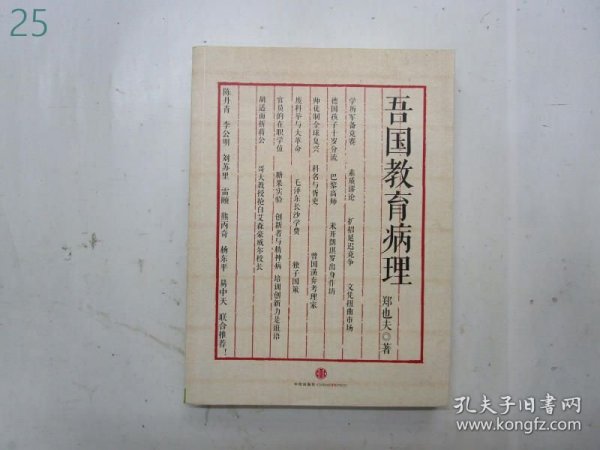 25
吾国教育病理
郑也夫◎著
学历军备竞赛 素质谬论 扩招延迟竞争 文化扭曲市场
德国孩子十岁分流 巴黎高师 米开朗琪罗出身作坊
师徒制全球复兴 科名与胥吏 曾国藩夯考理家
废科举与大革命 毛泽东长沙学费 独子国策
官员的在职学位 糖果实验 创新者与精神病 培训创新力是诅语
胡适面斥蒋公 哥大教授抢白艾森豪威尔校长
陈丹青 李公明 刘苏里 雷颐 熊丙奇 杨东平 易中天 联合推荐!
中信出版社
孔夫子旧书网
www.kongfz.com